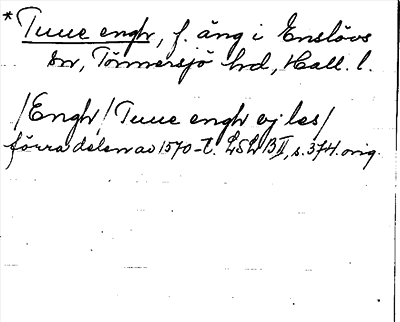 *Tuue engh, f. äng i Enslövs
sn, Tönnersjö hd, Hall. l.
/Engh/Tuue engh ej läs/
förra delen av 1570-t. LSLB II, s. 374. orig.